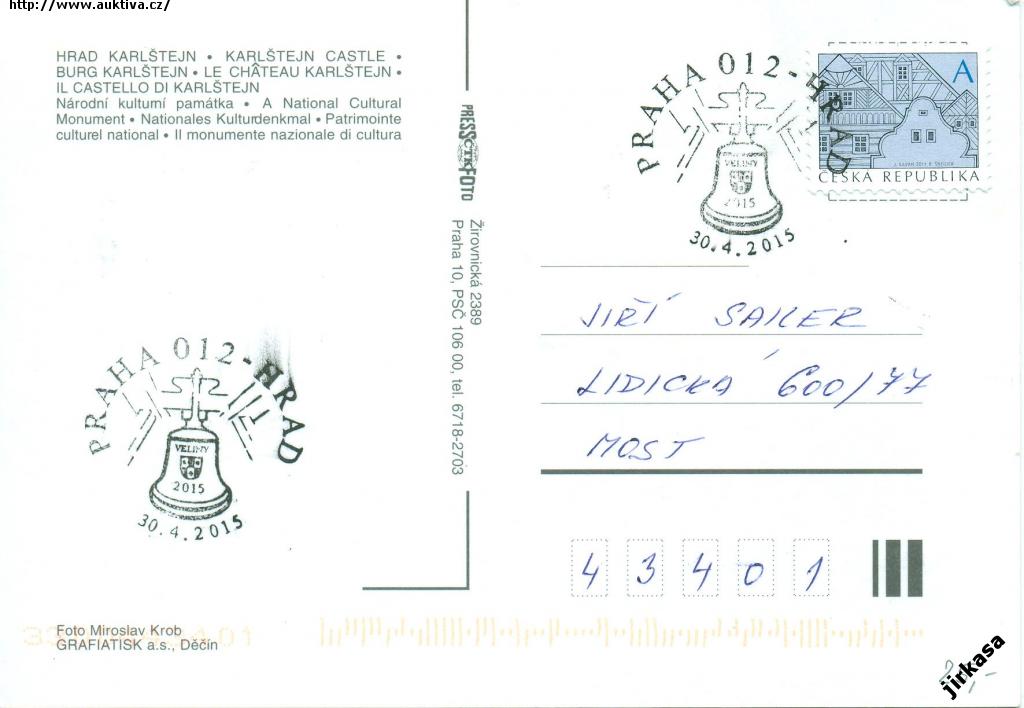 http://www.auktiva.cz/
HRAD KARLŠTEJN • KARLŠTEJN CASTLE •
BURG KARLŠTEJN • LE CHÂTEAU KARLŠTEJN •
IL CASTELLO DI KARLŠTEJN
Národní kulturní památka • A National Cultural
Monument • Nationales Kulturdenkmal • Patrimointe
culturel national • Il monumente nazionale di cultura
PRESS ČTK FOTO
Žirovnická 2389
Praha 10, PSČ 106 00, tel. 6718-2703
PRAHA 012 - HRAD
VELINY
2015
30.4.2015
A
ČESKÁ REPUBLIKA
JIŘÍ SAKER
LIDICKÁ 600/77
MOST
43401
PRAHA 012 - HRAD
VELINY
2015
30.4.2015
Foto Miroslav Krob
GRAFIATISK a.s., Děčín
jirkasa